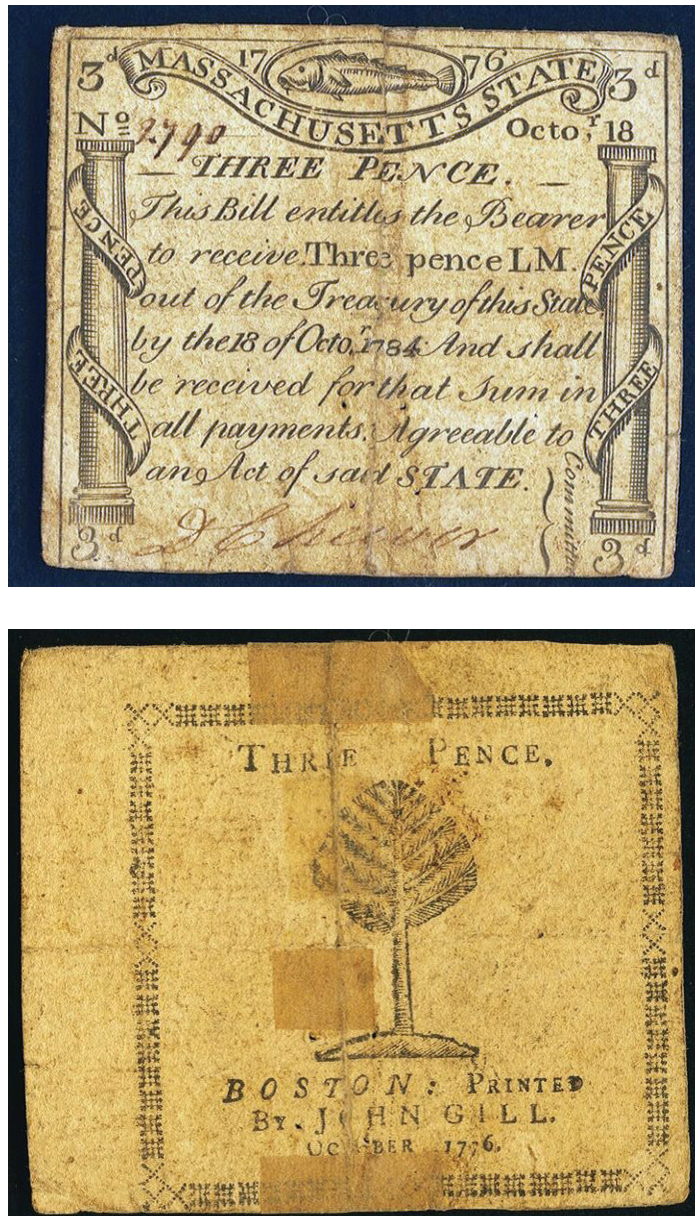 3d 17 76 3d
MASSACHUSETTS STATE
No 2790 Octo,r 18
THREE PENCE.
This Bill entitles the Bearer
to receive Three pence LM.
out of the Treasury of this State
by the 18 of Octo,r 1784 And shall
be received for that Sum in
all payments. Agreeable to
an Act of said STATE.
D Cheever
Committee
PENCE
THREE
PENCE
THREE
3d 3d
THREE PENCE.
BOSTON: PRINTED
BY JOHN GILL.
OCTOBER 1776.